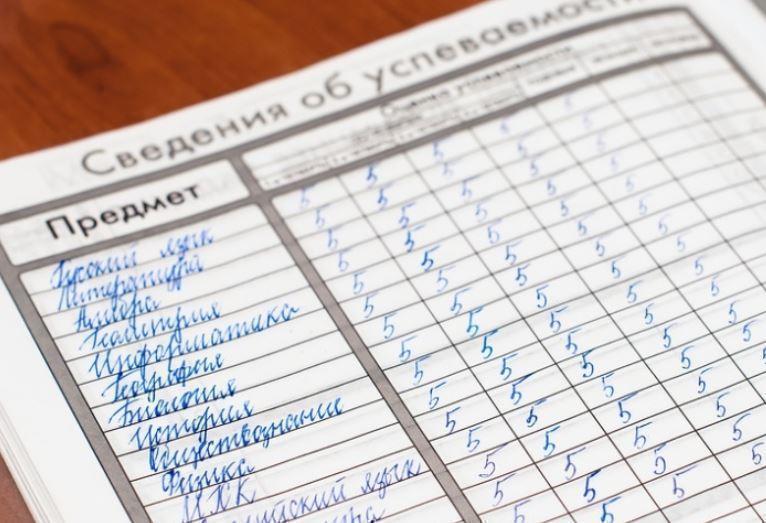 Сведения об успеваемости
Предмет
Оценка успеваемости
Русский язык 5 5 5 5 5
Литература 5 5 5 5 5
Алгебра 5 5 5 5 5
Геометрия 5 5 5 5 5
Информатика 5 5 5 5 5
География 5 5 5 5 5
Биология 5 5 5 5 5
История 5 5 5 5 5
Обществознание 5 5 5 5 5
Физика 5 5 5 5 5
МХК 5 5 5 5
язык 5 5 5